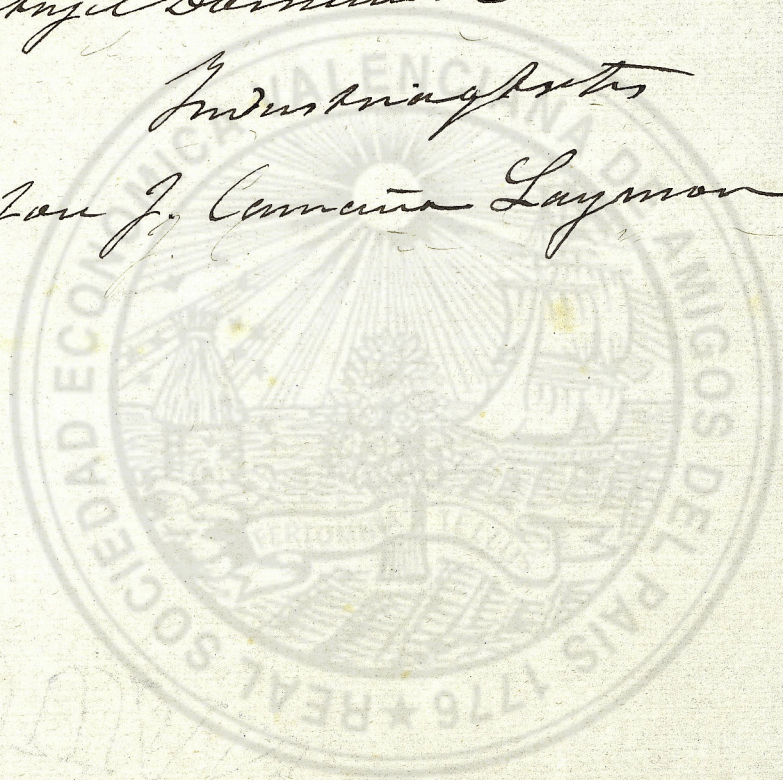 Industria y Artes
Don J. Camaña Laymon
REAL SOCIEDAD ECONOMICA VALENCIANA DE AMIGOS DEL PAIS 1776